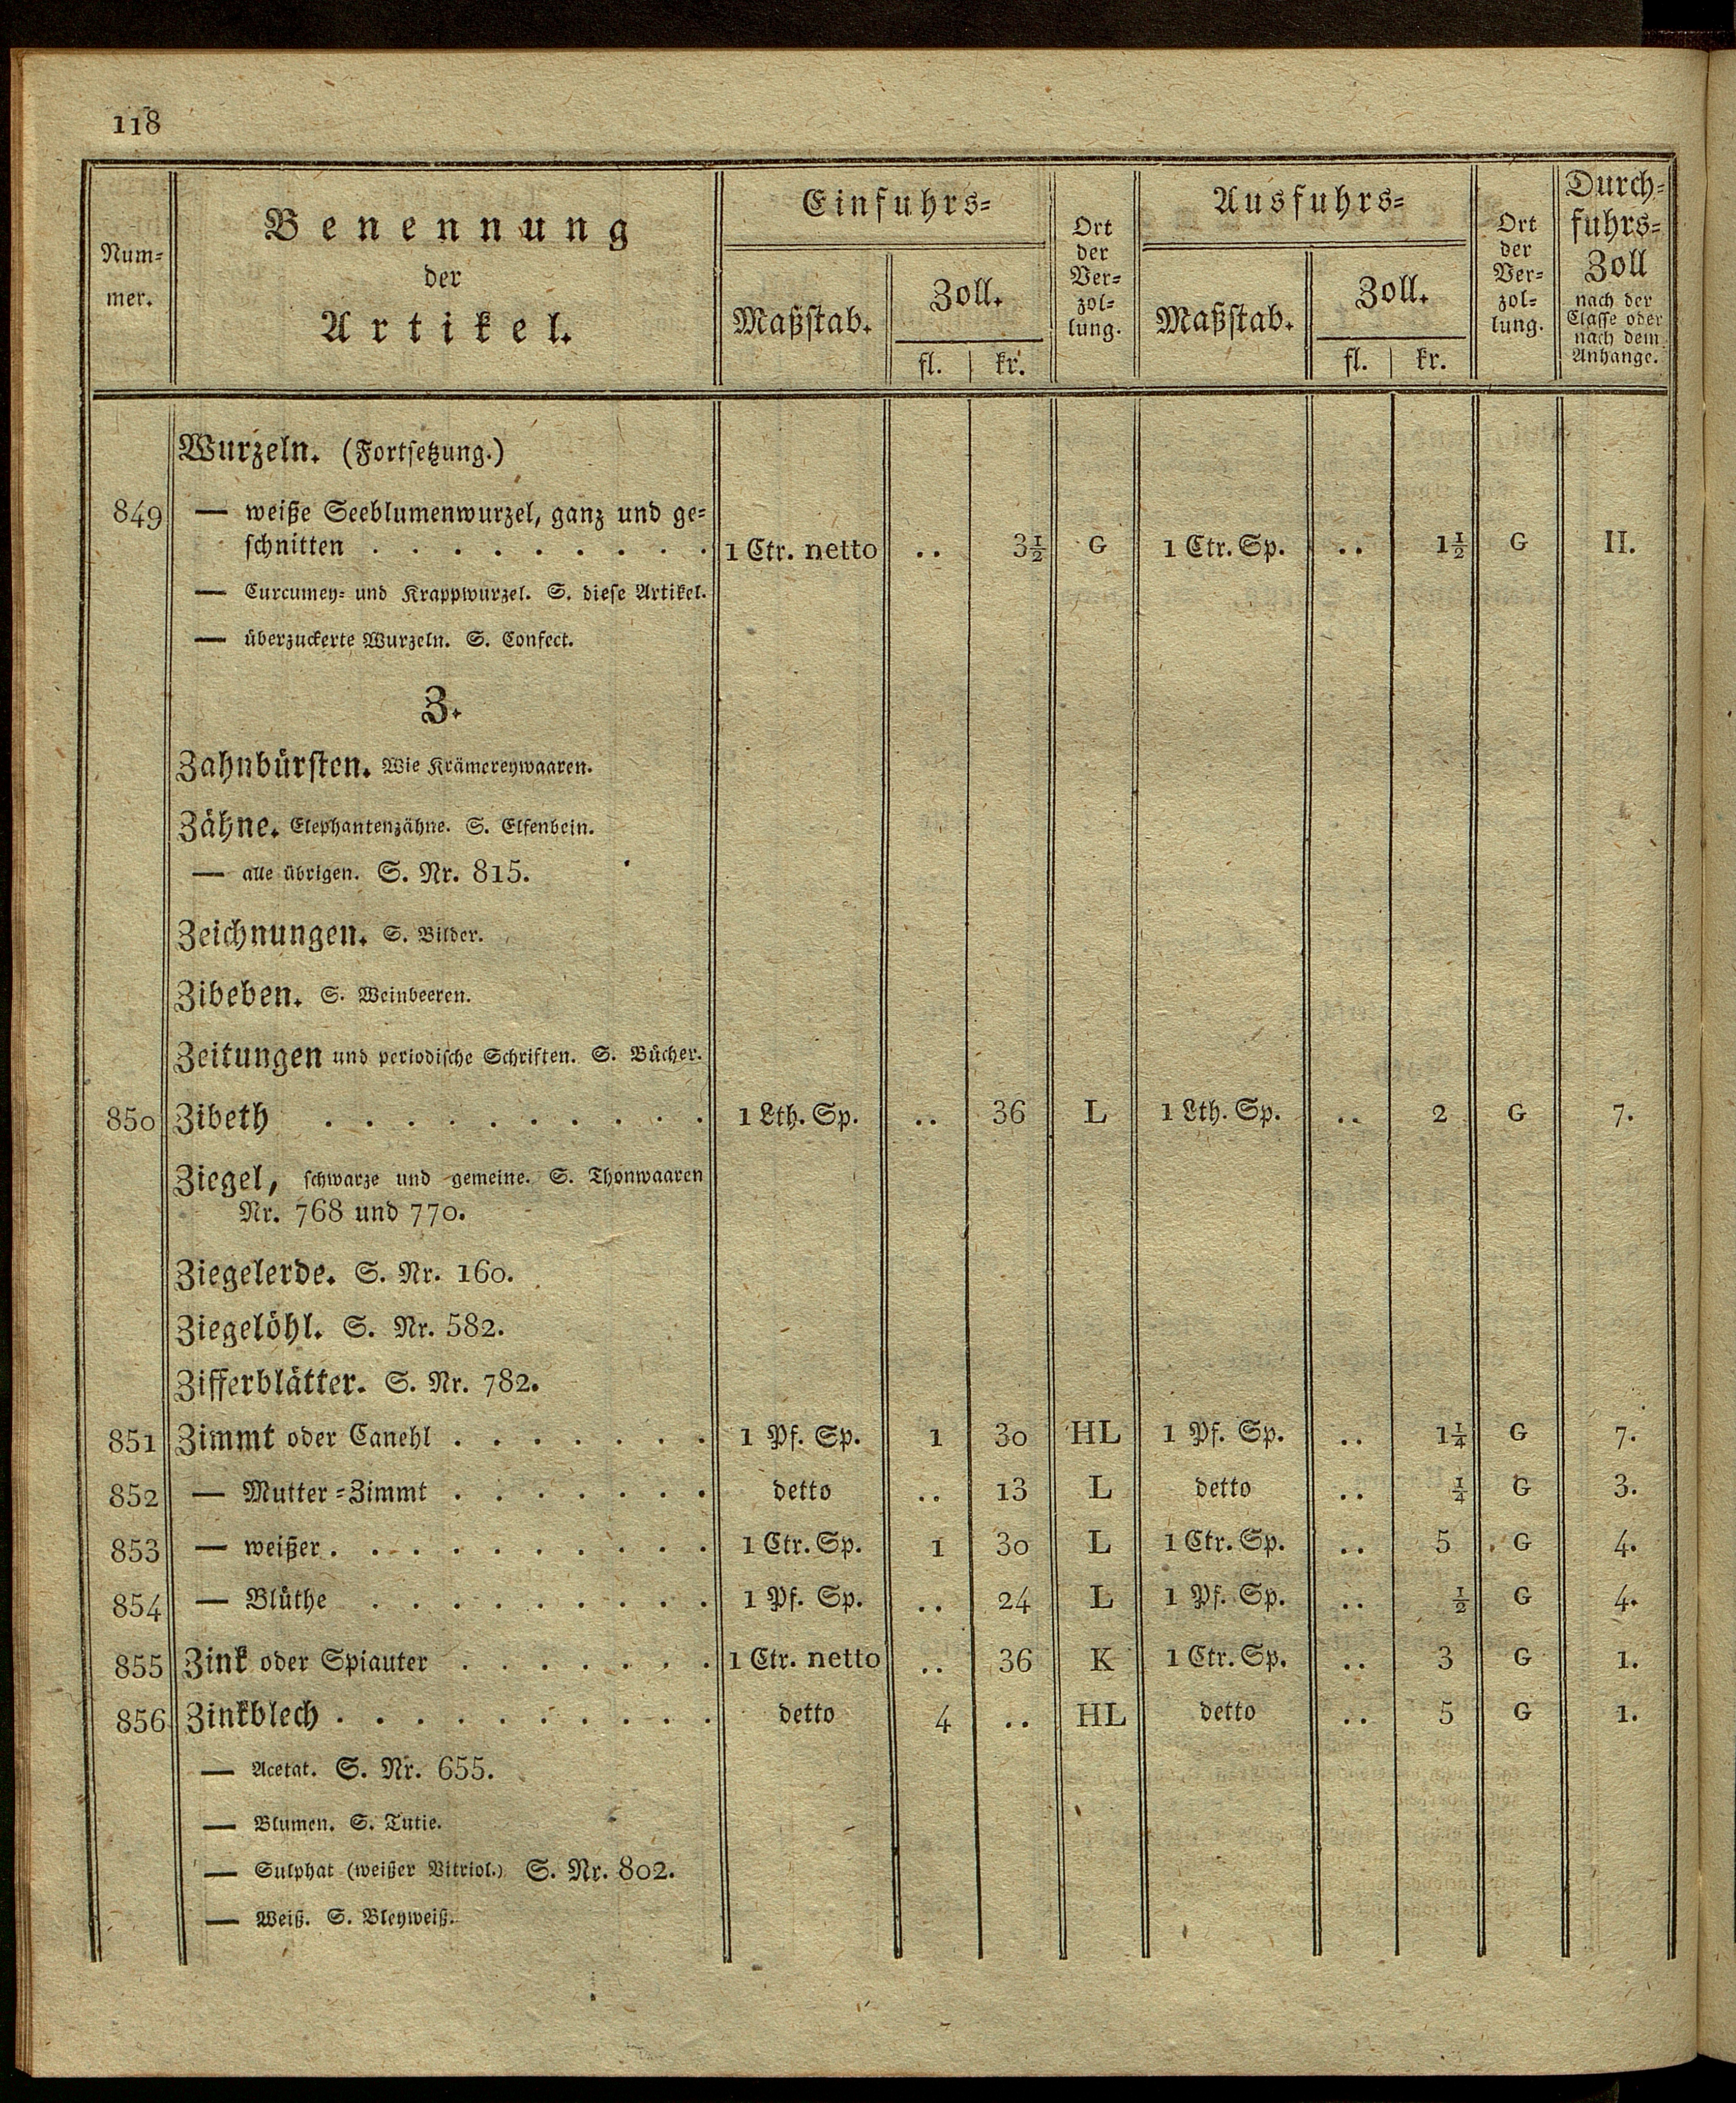 118
Num-
mer.
Benennung
der
Artikel.
Einfuhrs-
Maßstab.
Zoll.
fl. | kr.
Ort
der
Ver-
zol-
lung.
Ausfuhrs-
Maßstab.
Zoll.
fl. | kr.
Ort
der
Ver-
zol-
lung.
Durch-
fuhrs-
Zoll
nach der
Classe oder
nach dem
Anhange.
Wurzeln. (Fortsetzung.)
849 — weiße Seeblumenwurzel, ganz und ge-
schnitten . . . . . . . . . 1 Ctr. netto .. 3½ G 1 Ctr. Sp. .. 1½ G II.
— Curcumey- und Krappwurzel. S. diese Artikel.
— überzuckerte Wurzeln. S. Confect.
Z.
Zahnbürsten. Wie Krämereywaaren.
Zähne. Elephantenzähne. S. Elfenbein.
— alle übrigen. S. Nr. 815.
Zeichnungen. S. Bilder.
Zibeben. S. Weinbeeren.
Zeitungen und periodische Schriften. S. Bücher.
850 Zibeth . . . . . . . . . . 1 Lth. Sp. .. 36 L 1 Lth. Sp. .. 2 G 7.
Ziegel, schwarze und gemeine. S. Thonwaaren
Nr. 768 und 770.
Ziegelerde. S. Nr. 160.
Ziegelöhl. S. Nr. 582.
Zifferblätter. S. Nr. 782.
851 Zimmt oder Canehl . . . . . . . 1 Pf. Sp. 1 30 HL 1 Pf. Sp. .. 1¼ G 7.
852 — Mutter-Zimmt . . . . . . . detto .. 13 L detto .. ¼ G 3.
853 — weißer . . . . . . . . . . 1 Ctr. Sp. 1 30 L 1 Ctr. Sp. .. 5 G 4.
854 — Blüthe . . . . . . . . . 1 Pf. Sp. .. 24 L 1 Pf. Sp. .. ½ G 4.
855 Zink oder Spiauter . . . . . . . 1 Ctr. netto .. 36 K 1 Ctr. Sp. .. 3 G 1.
856 Zinkblech . . . . . . . . . . detto 4 .. HL detto .. 5 G 1.
— Acetat. S. Nr. 655.
— Blumen. S. Tutie.
— Sulphat (weißer Vitriol.) S. Nr. 802.
— Weiß. S. Bleyweiß.